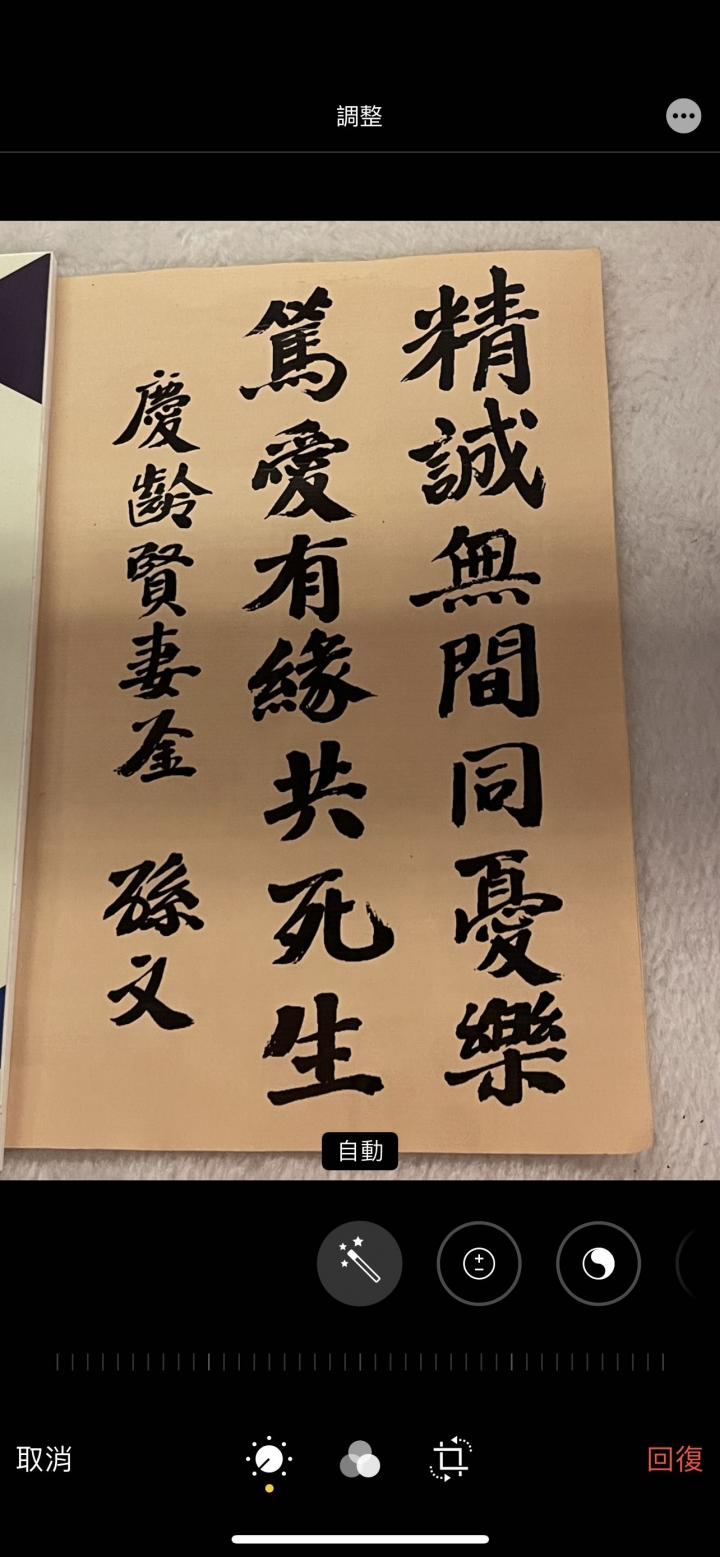 調整
精誠無間同憂樂
篤愛有緣共死生
慶齡賢妻鉴 孫文
自動
取消
回復